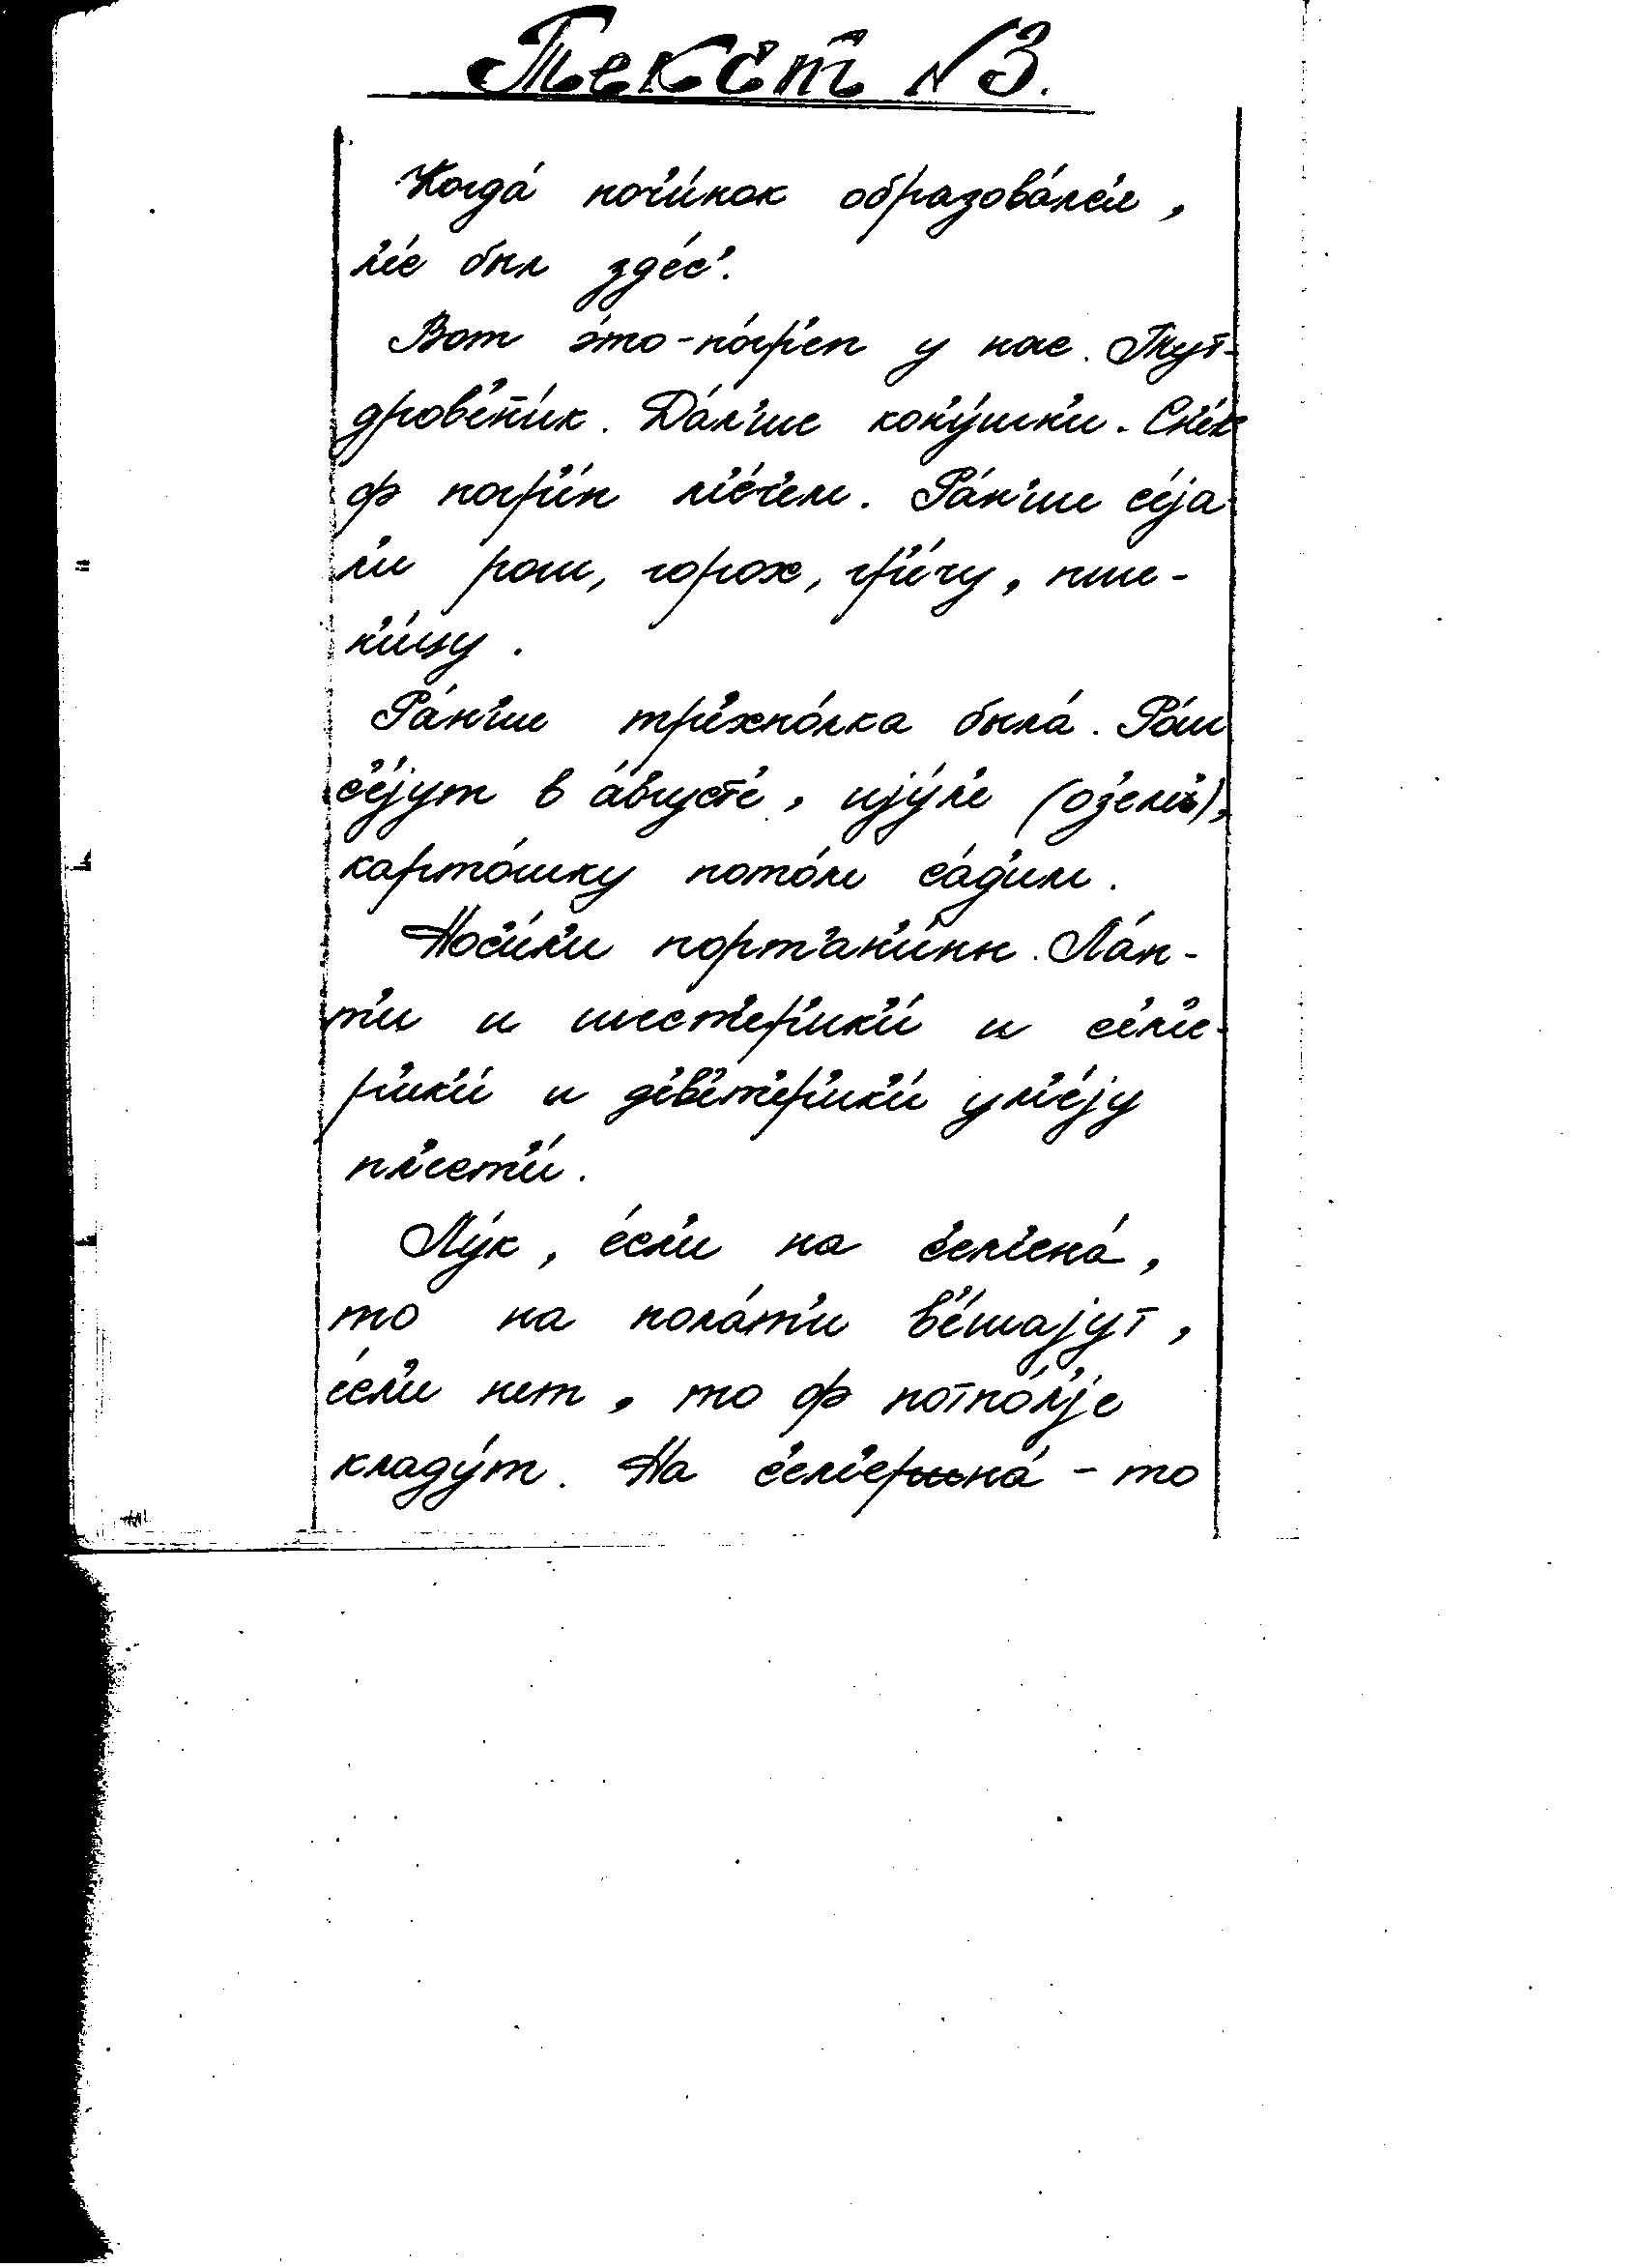 Текст №3.
Когда́ почи́нок образова́лс'а,
л'ес был зд'ес'.
Вот э́то-по́гр'еп у нас. Тут-
дров'е́н'ик. Да́л'ше кон'у́шн'и. Сн'ек
ф погр'и́п м'е́ч'ем. Ра́н'ше с'е́jа
л'и рош, горох, гр'е́чу, пше-
н'и́цу.
Ра́н'ше тр'охпо́лка была́. Рош
с'е́jут в а́вгуст'е, иjу́л'е (оз'ем'),
карто́шку пото́м са́д'им.
Нос'и́л'и порт'ан'и́нн. Ла́п-
т'и и шест'ер'ик'и́ и с'ем'е-
р'ик'и́ и д'ев'ет'ер'ик'и́ ум'е́jу
пл'ест'и́.
Лу́к, е́сл'и на с'ем'ена́,
то на пола́т'и в'е́шаjут,
е́сл'и нет, то ф потпо́л'jе
кладу́т. На с'ем'ена́ - то